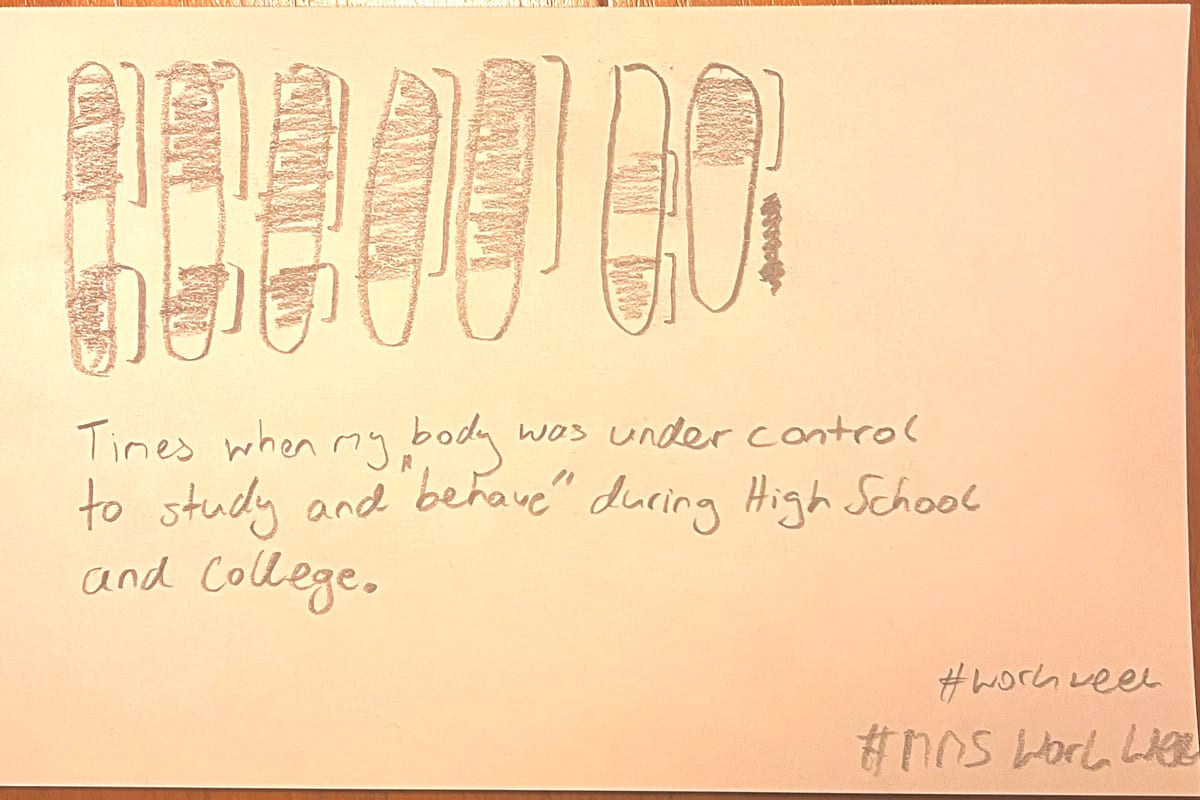 Times when my body was under control
to study and "behave" during High School
and College.
#workweek
#MMS Work Week